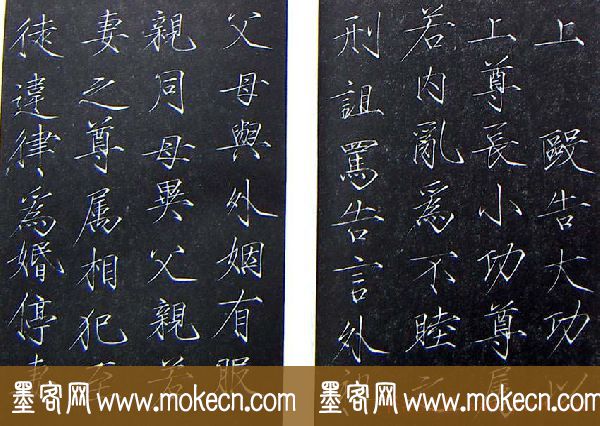 上 毆告大功以
上尊長小功尊屬
若内亂為不睦之
刑詛罵告言外祖
父母與外姻有服
親同母異父親若
妻之尊属相犯至
徒違律為婚停妻
墨客网 www.mokecn.com 墨客网 www.mokecn.com